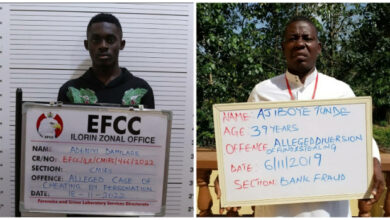 EFCC
ILORIN ZONAL OFFICE
ADENIYI DAMILARE
CR/NO:
SECTION: CMRS
OFFENCE: ALLEGED CASE OF
CHEATING BY PERSONATION
15-11-2022
Forensics and Crime Laboratory Services Directorate
NAME: AJIBOYE TUNDE
AGE: 39 YEARS
OFFENCE: ALLEGED DIVERSION
6/11/2019
SECTION: BANK FRAUD